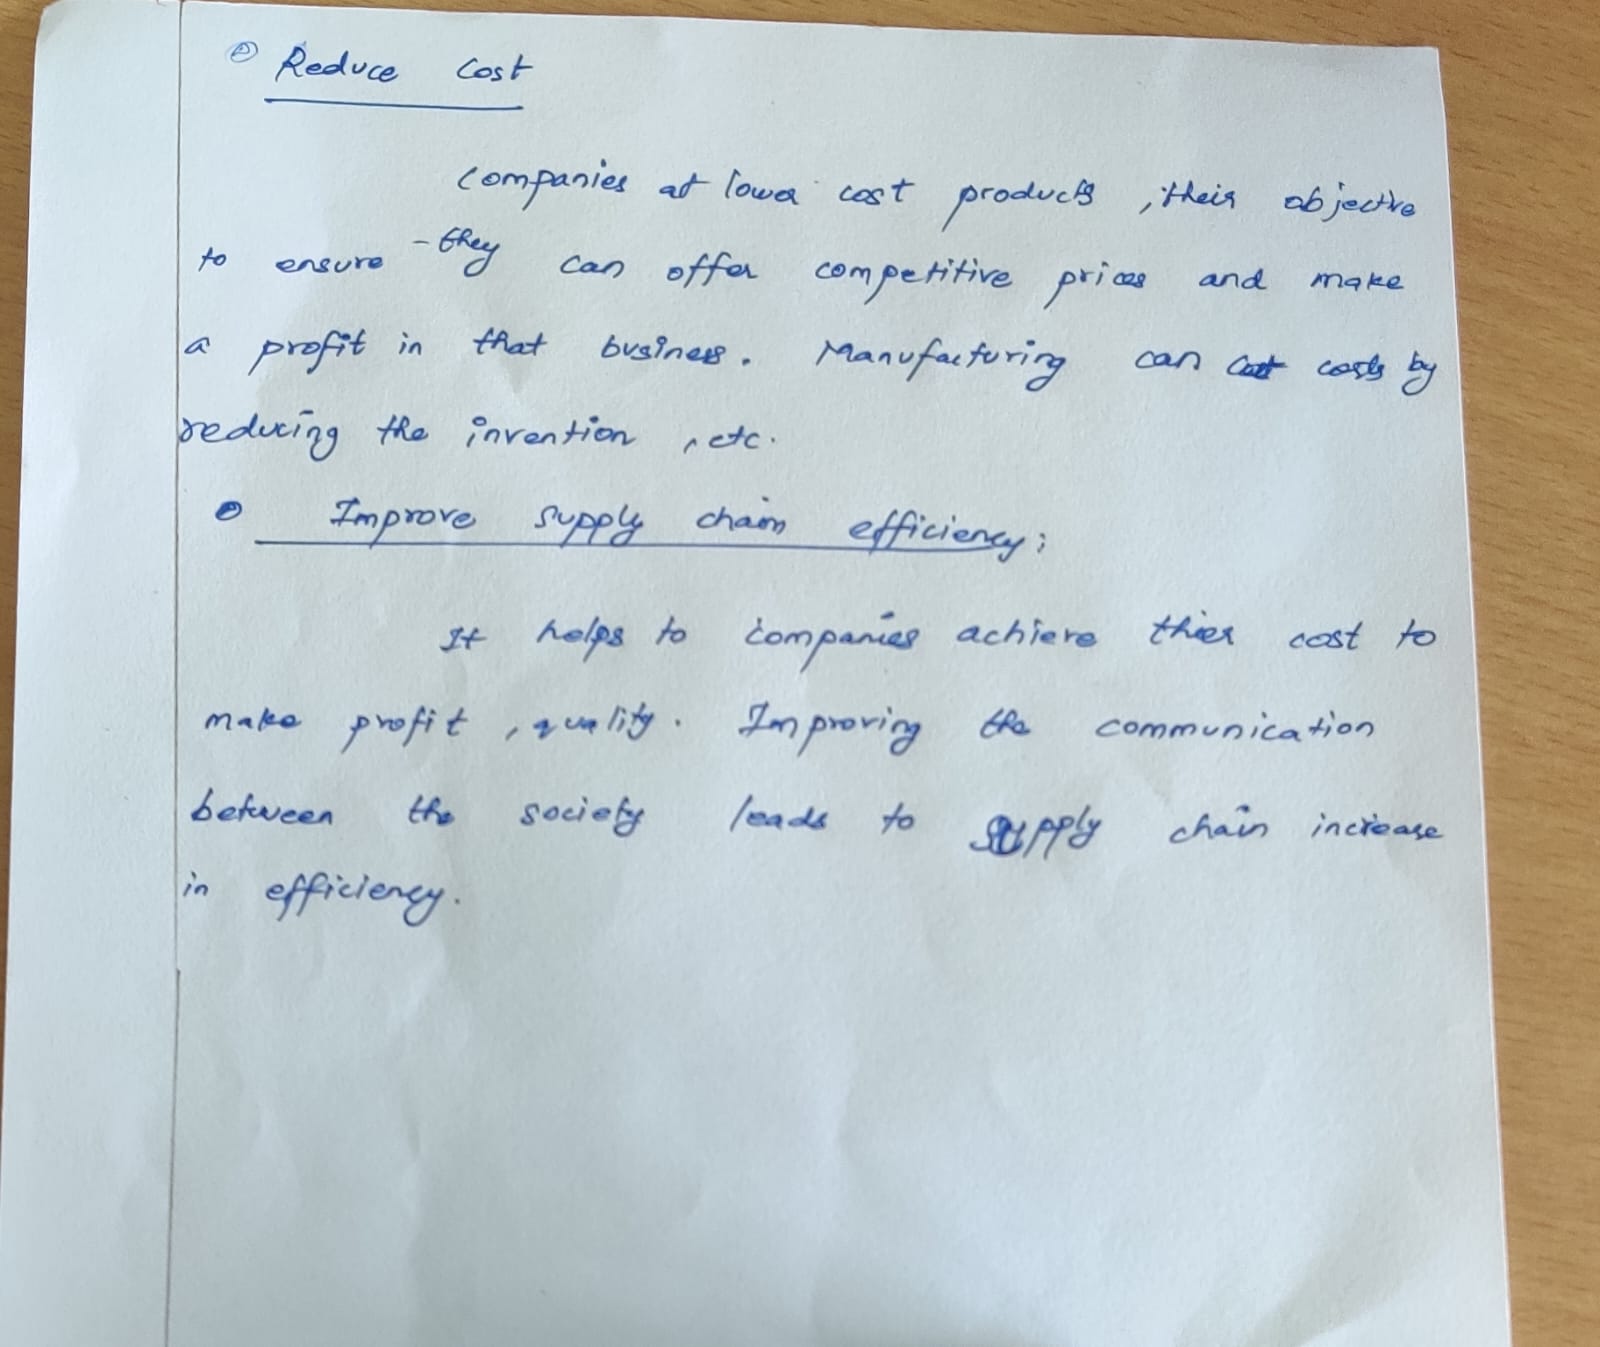 Reduce Cost
Companies at lower cost products, their objective
to ensure they can offer competitive prices and make
a profit in that business. Manufacturing can cut costs by
reducing the invention, etc.
Improve supply chain efficiency:
It helps to companies achieve thier cost to
make profit, quality. Improving the communication
between the society leads to supply chain increase
in efficiency.